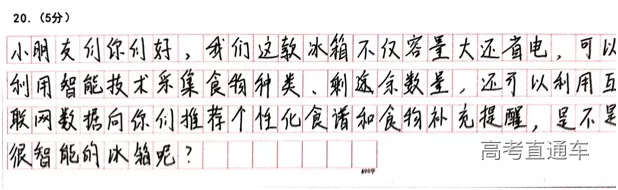 20.（5分）
小朋友们你们好，我们这款冰箱不仅容量大还省电，可以
利用智能技术采集食物种类、剩余数量，还可以利用互
联网数据向你们推荐个性化食谱和食物补充提醒，是不是
很智能的冰箱呢？
高考直通车